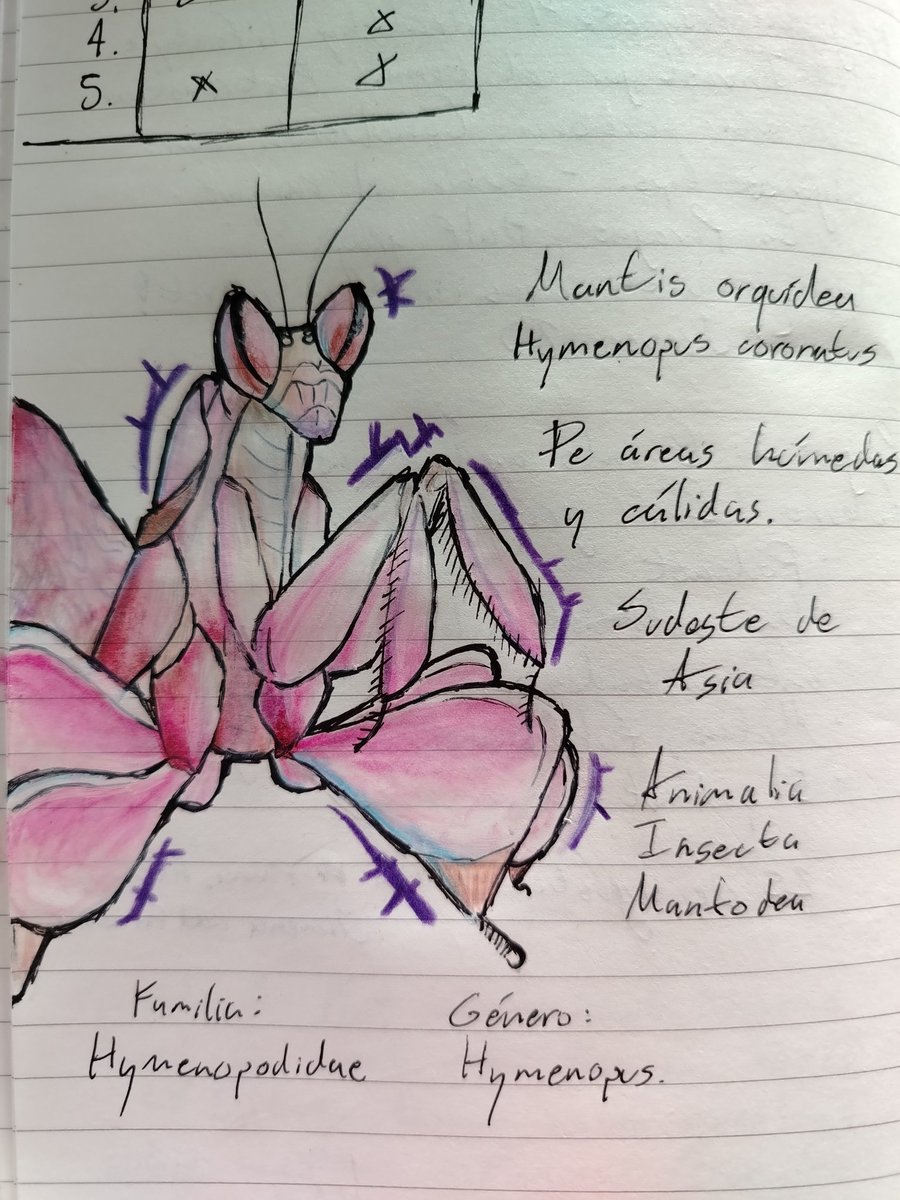 4.
5.
Mantis orquídea
Hymenopus coronatus
De áreas húmedas
y cálidas.
Sudeste de
Asia
Animalia
Insecta
Mantodea
Familia:
Hymenopodidae
Género:
Hymenopus.